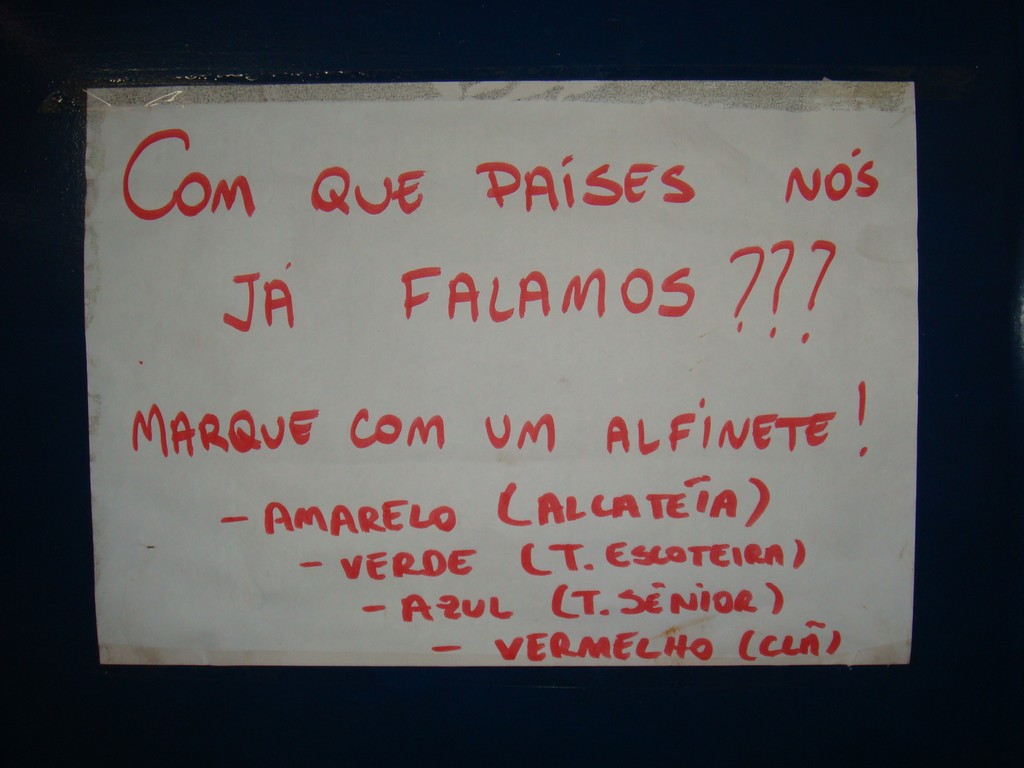 COM QUE PAÍSES NÓS
JÁ FALAMOS ???
MARQUE COM UM ALFINETE!
- AMARELO (ALCATÉIA)
- VERDE (T. ESCOTEIRA)
- AZUL (T. SÊNIOR)
- VERMELHO (CLÃ)